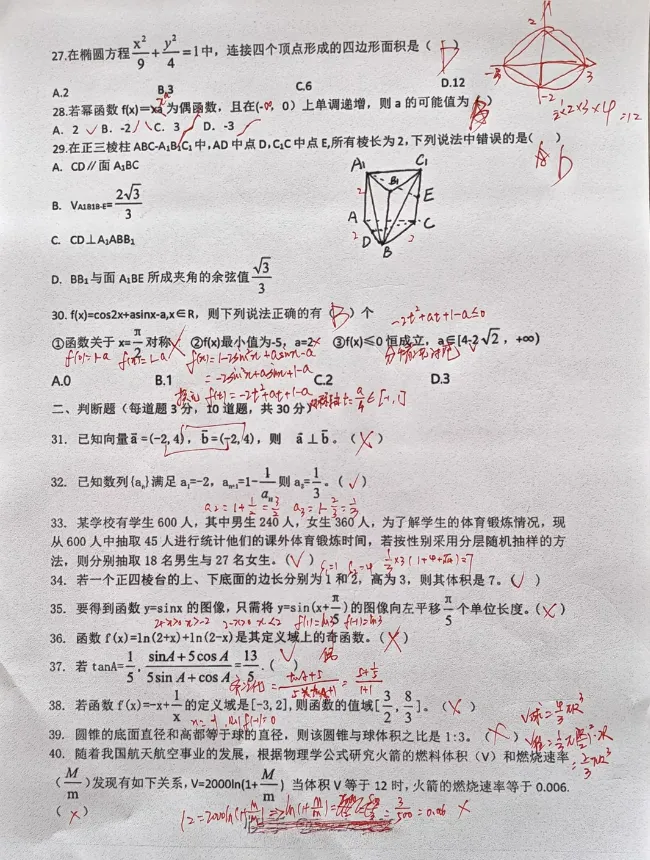 27.在椭圆方程x²/9+y²/4=1中，连接四个顶点形成的四边形面积是（D）
A.2 B.3 C.6 D.12
28.若幂函数 f(x)=xa 为偶函数，且在(-∞，0）上单调递增，则 a 的可能值为（ ）
A. 2 B. -2 C. 3 D. -3
½×2×3×4=12
29.在正三棱柱 ABC-A1B1C1 中,AD 中点 D,C1C 中点 E,所有棱长为 2,下列说法中错误的是( ) b
A. CD∥面 A1BC
B. VA1B1B-E=2√3/3
C. CD⊥A1ABB1
D. BB1与面 A1BE 所成夹角的余弦值√3/3
A1 C1 B1 E A C D B 2 2
30. f(x)=cos2x+asinx-a,x∈R，则下列说法正确的有（B）个
-2t²+at+1-a≤0
①函数关于 x=π/2对称 ②f(x)最小值为-5，a=2 ③f(x)≤0 恒成立，a∈[4-2√2，+∞)
f(0)=1-a f(π)=1-a f(x)=1-2sin²x+asinx-a
=-2sin²x+asinx+1-a
A.0 B.1 C.2 D.3
换元 f(t)=-2t²+at+1-a 对称轴t=a/4∈[-1,1]
二、判断题（每道题 3 分，10 道题，共 30 分）
31. 已知向量a=(-2,4)，b=(-2,4)，则 a⊥b。（×）
32. 已知数列{an}满足 a1=-2，an+1=1-1/an则 a3=1/3。（√）
a2=1+½=3/2 a3=1-2/3=1/3
33. 某学校有学生 600 人，其中男生 240 人，女生 360 人，为了解学生的体育锻炼情况，现
从 600 人中抽取 45 人进行统计他们的课外体育锻炼时间，若按性别采用分层随机抽样的方
法，则分别抽取 18 名男生与 27 名女生。（√）
S1=1 S2=4 1/3×3(1+4+√4)=7
34. 若一个正四棱台的上、下底面的边长分别为 1 和 2，高为 3，则其体积是 7。（√）
35. 要得到函数 y=sinx 的图像，只需将 y=sin(x+π/5)的图像向左平移π/5个单位长度。（×）
2+x>0 x>-2 2-x>0 x<2 f(1)=ln3 f(-1)=ln3
36. 函数 f(x)=ln(2+x)+ln(2-x)是其定义域上的奇函数。（×）
偶
37. 若 tanA=1/5，sinA+5cosA/5sinA+cosA=13/5.（√）
=tanA+5/5×tanA+1=5+1/5/1+1
38. 若函数 f(x)=-x+1/x的定义域是[-3,2],则函数的值域[3/2,8/3]。（×）
x=-1 f(-1)=0
V球=4/3πR³
39. 圆锥的底面直径和高都等于球的直径，则该圆锥与球体积之比是 1:3。（×）
40. 随着我国航天航空事业的发展，根据物理学公式研究火箭的燃料体积（V）和燃烧速率
=2/3πR³
（M/m）发现有如下关系，V=2000ln(1+M/m) 当体积 V 等于 12 时，火箭的燃烧速率等于 0.006.
（×）
12=2000ln(1+M/m) ⇒ ln(1+M/m)=3/500=0.06 ×